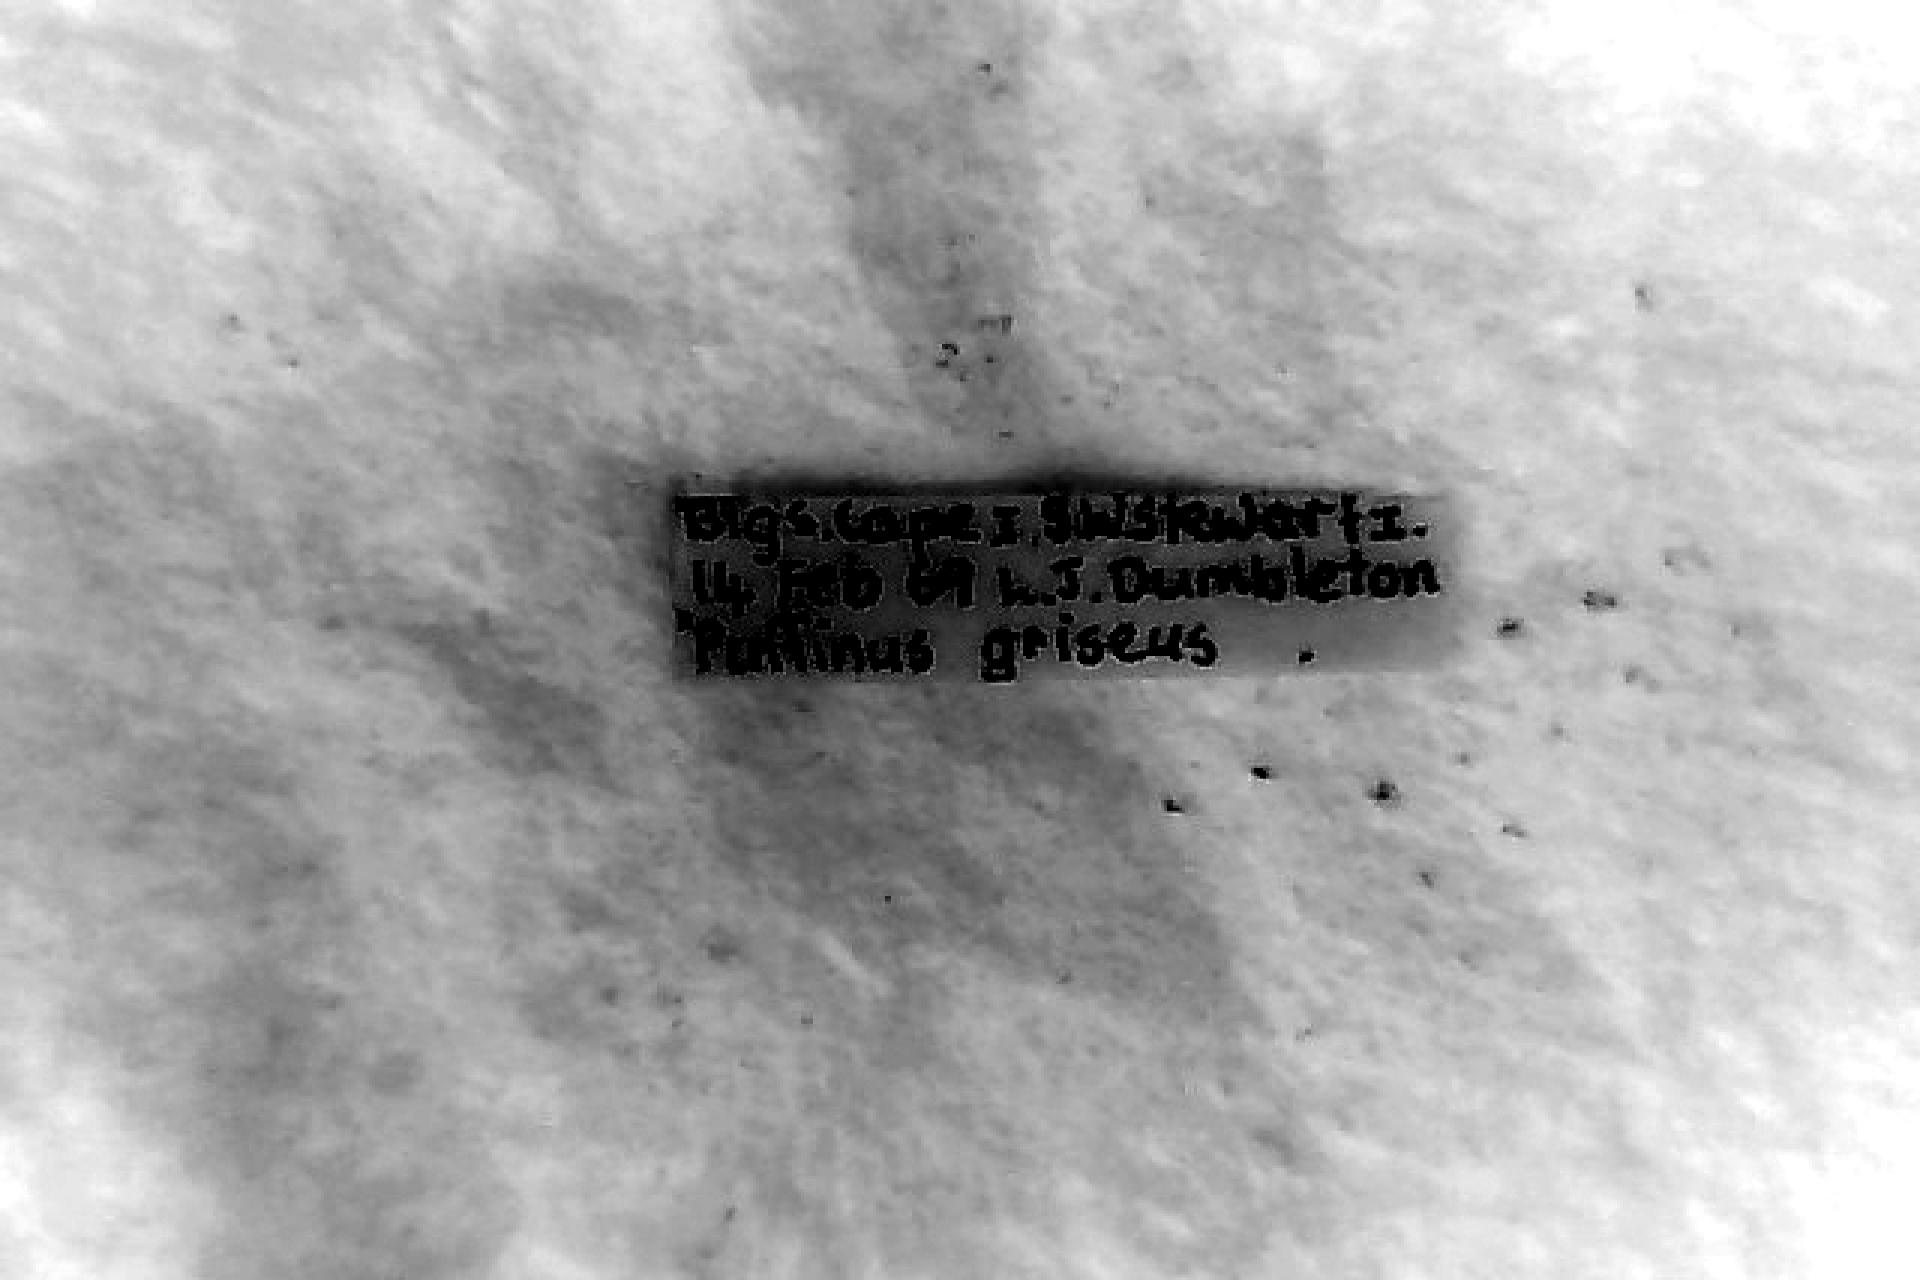 Big S. Cape I. SW Stewart I.
14 Feb 69 L.J. Dumbleton
Puffinus griseus